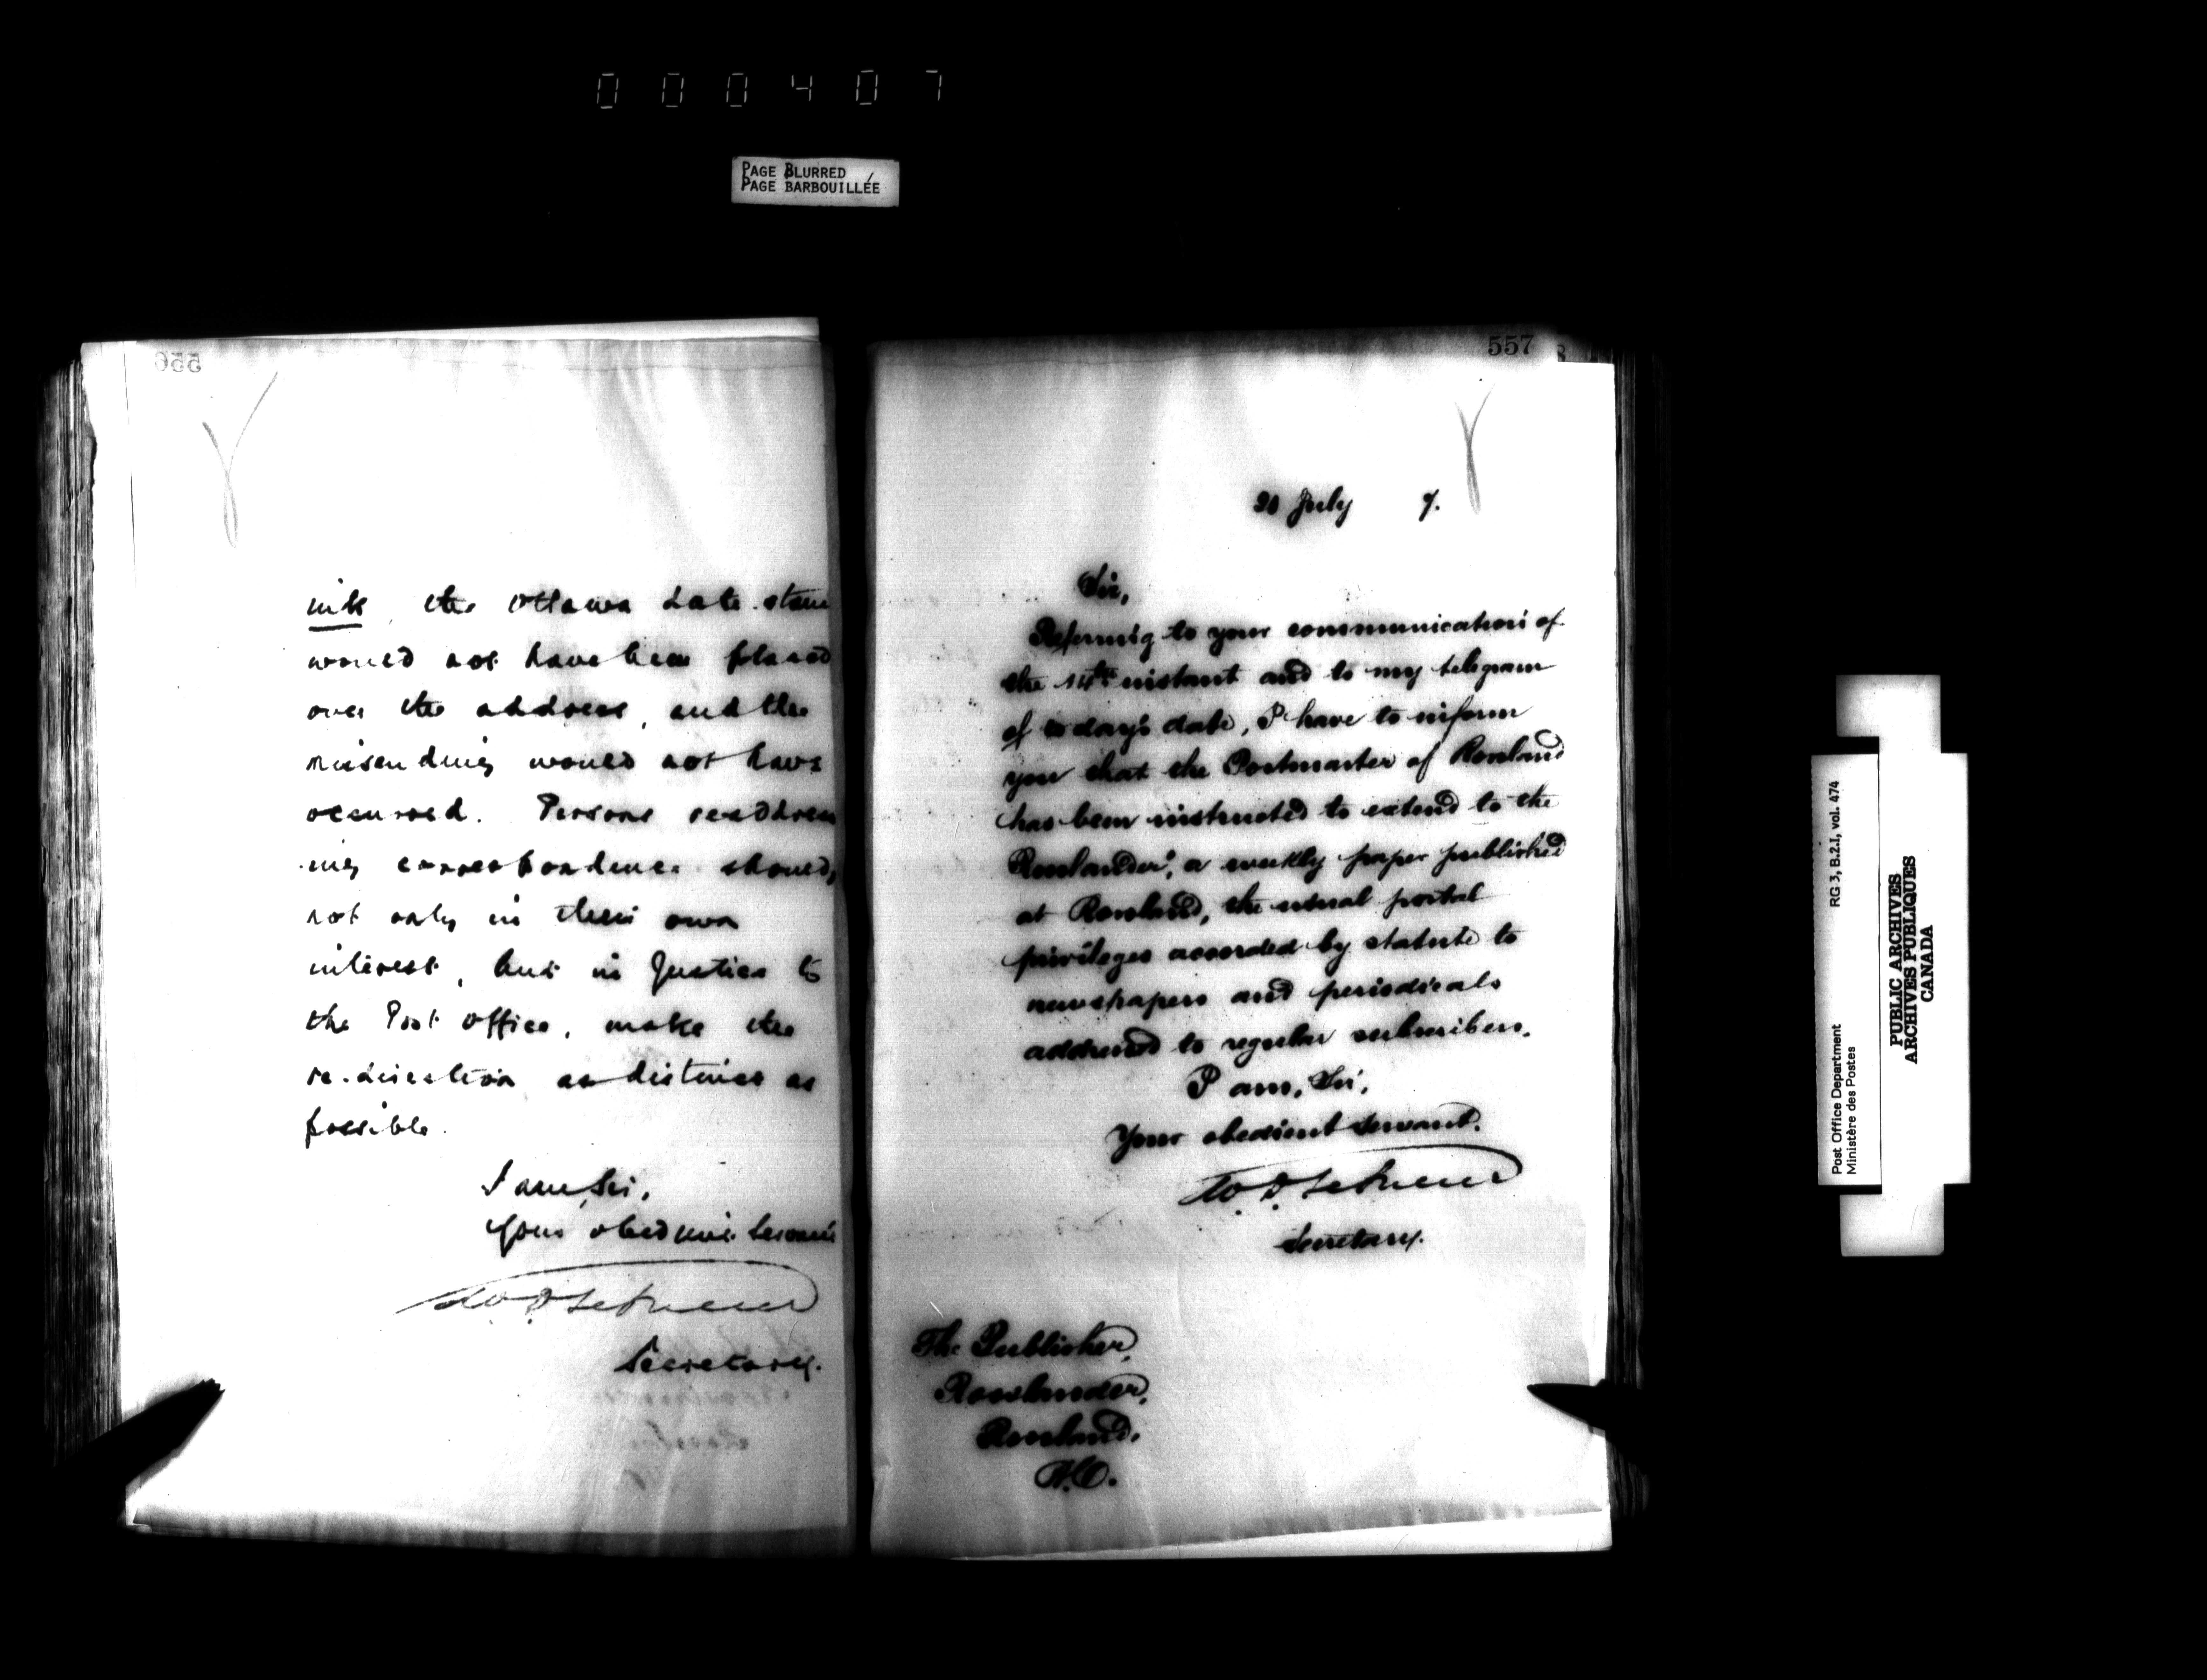 000407
PAGE BLURRED
PAGE BARBOUILLÉE
556
ink the Ottawa date stam
would not have been placed
over the address, and the
missending would not have
occurred. Persons readdress
ing correspondence should,
not only in their own
interest, but in justice to
the Post Office, make the
re-direction as distinct as
possible.
I am, Sir,
Your obedient Servant
Secretary.
557
20 July 7.
Sir,
Referring to your communication of
the 14th instant and to my telegram
of to day's date, I have to inform
you that the Postmaster of Rossland
has been instructed to extend to the
"Rosslander", a weekly paper published
at Rossland, the usual postal
privileges accorded by statute to
newspapers and periodicals
addressed to regular subscribers.
I am, Sir,
Your obedient Servant.
Secretary.
The Publisher,
Rosslander,
Rossland,
B.C.
Post Office Department
Ministère des Postes
RG 3, B.2.I, vol. 474
PUBLIC ARCHIVES
ARCHIVES PUBLIQUES
CANADA